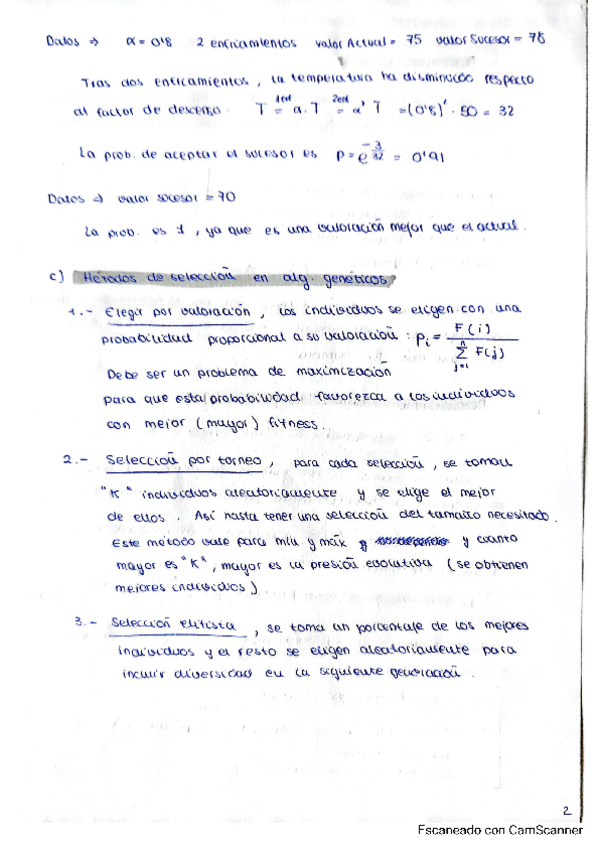 Datos => α = 0'8 2 enfriamientos valor Actual = 75 valor Sucesor = 78
Tras dos enfriamientos, la temperatura ha disminuido respecto
al factor de descenso. T 1enf = α·T 2enf = α² T = (0'8)² · 50 = 32
La prob. de aceptar el sucesor es p = e^(-3/32) = 0'91
Datos => valor sucesor = 70
La prob. es 1, ya que es una valoración mejor que el actual.
c) Métodos de selección en alg. genéticos
1.- Elegir por valoración, los individuos se eligen con una
probabilidad proporcional a su valoración: pi = F(i) / Σ j=1 n F(j)
Debe ser un problema de maximización
para que esta probabilidad favorezca a los individuos
con mejor (mayor) fitness.
2.- Selección por torneo, para cada selección, se toman
"K" individuos aleatoriamente y se elige el mejor
de ellos. Así hasta tener una selección del tamaño necesitado.
Este método vale para min y máx y cuanto
mayor es "K", mayor es la presión evolutiva (se obtienen
mejores individuos)
3.- Selección elitista, se toma un porcentaje de los mejores
individuos y el resto se eligen aleatoriamente para
incluir diversidad en la siguiente generación.
2
Escaneado con CamScanner